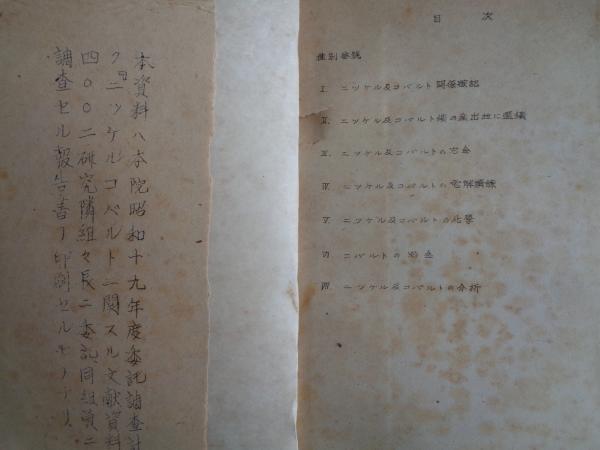 本資料ハ本院昭和十九年度委託調査計
クニッケルコバルトニ関スル文献資料
四〇〇二研究隣組々長ニ委託同組員ニ
調査セル報告書ヲ印刷セルモノナリ
目次
種別番號
I. ニツケル及コバルト関係雑記
II. ニツケル及コバルト鑛の産出地に
III. ニツケル及コバルトの冶金
IV. ニツケル及コバルトの電解精錬
V. ニツケル及コバルトの化學
VI. コバルトの冶金
VII. ニツケル及コバルトの分析